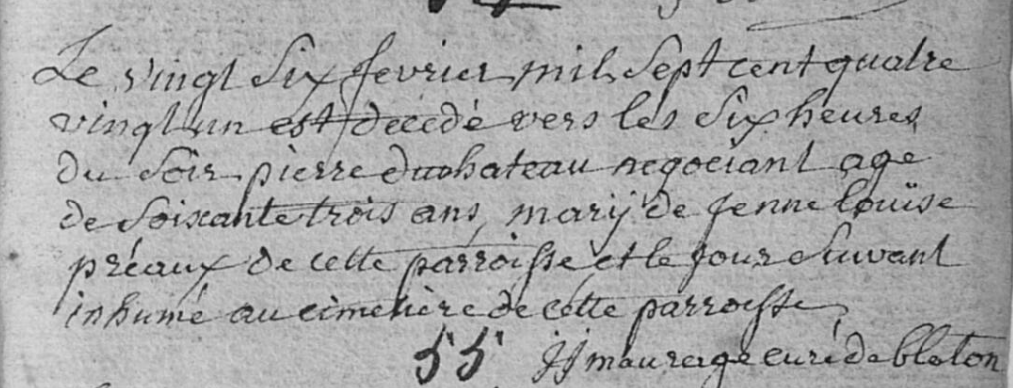 Le vingt Six fevrier mil Sept cent quatre
vingt un est decedé vers les Six heures
du Soir pierre duchateau negociant age
de Soixante trois ans, marij de jenne loüise
préaux de cette parroisse et le jour Suivant
inhumé au cimetiere de cette parroisse
55 JJ curé de blaton